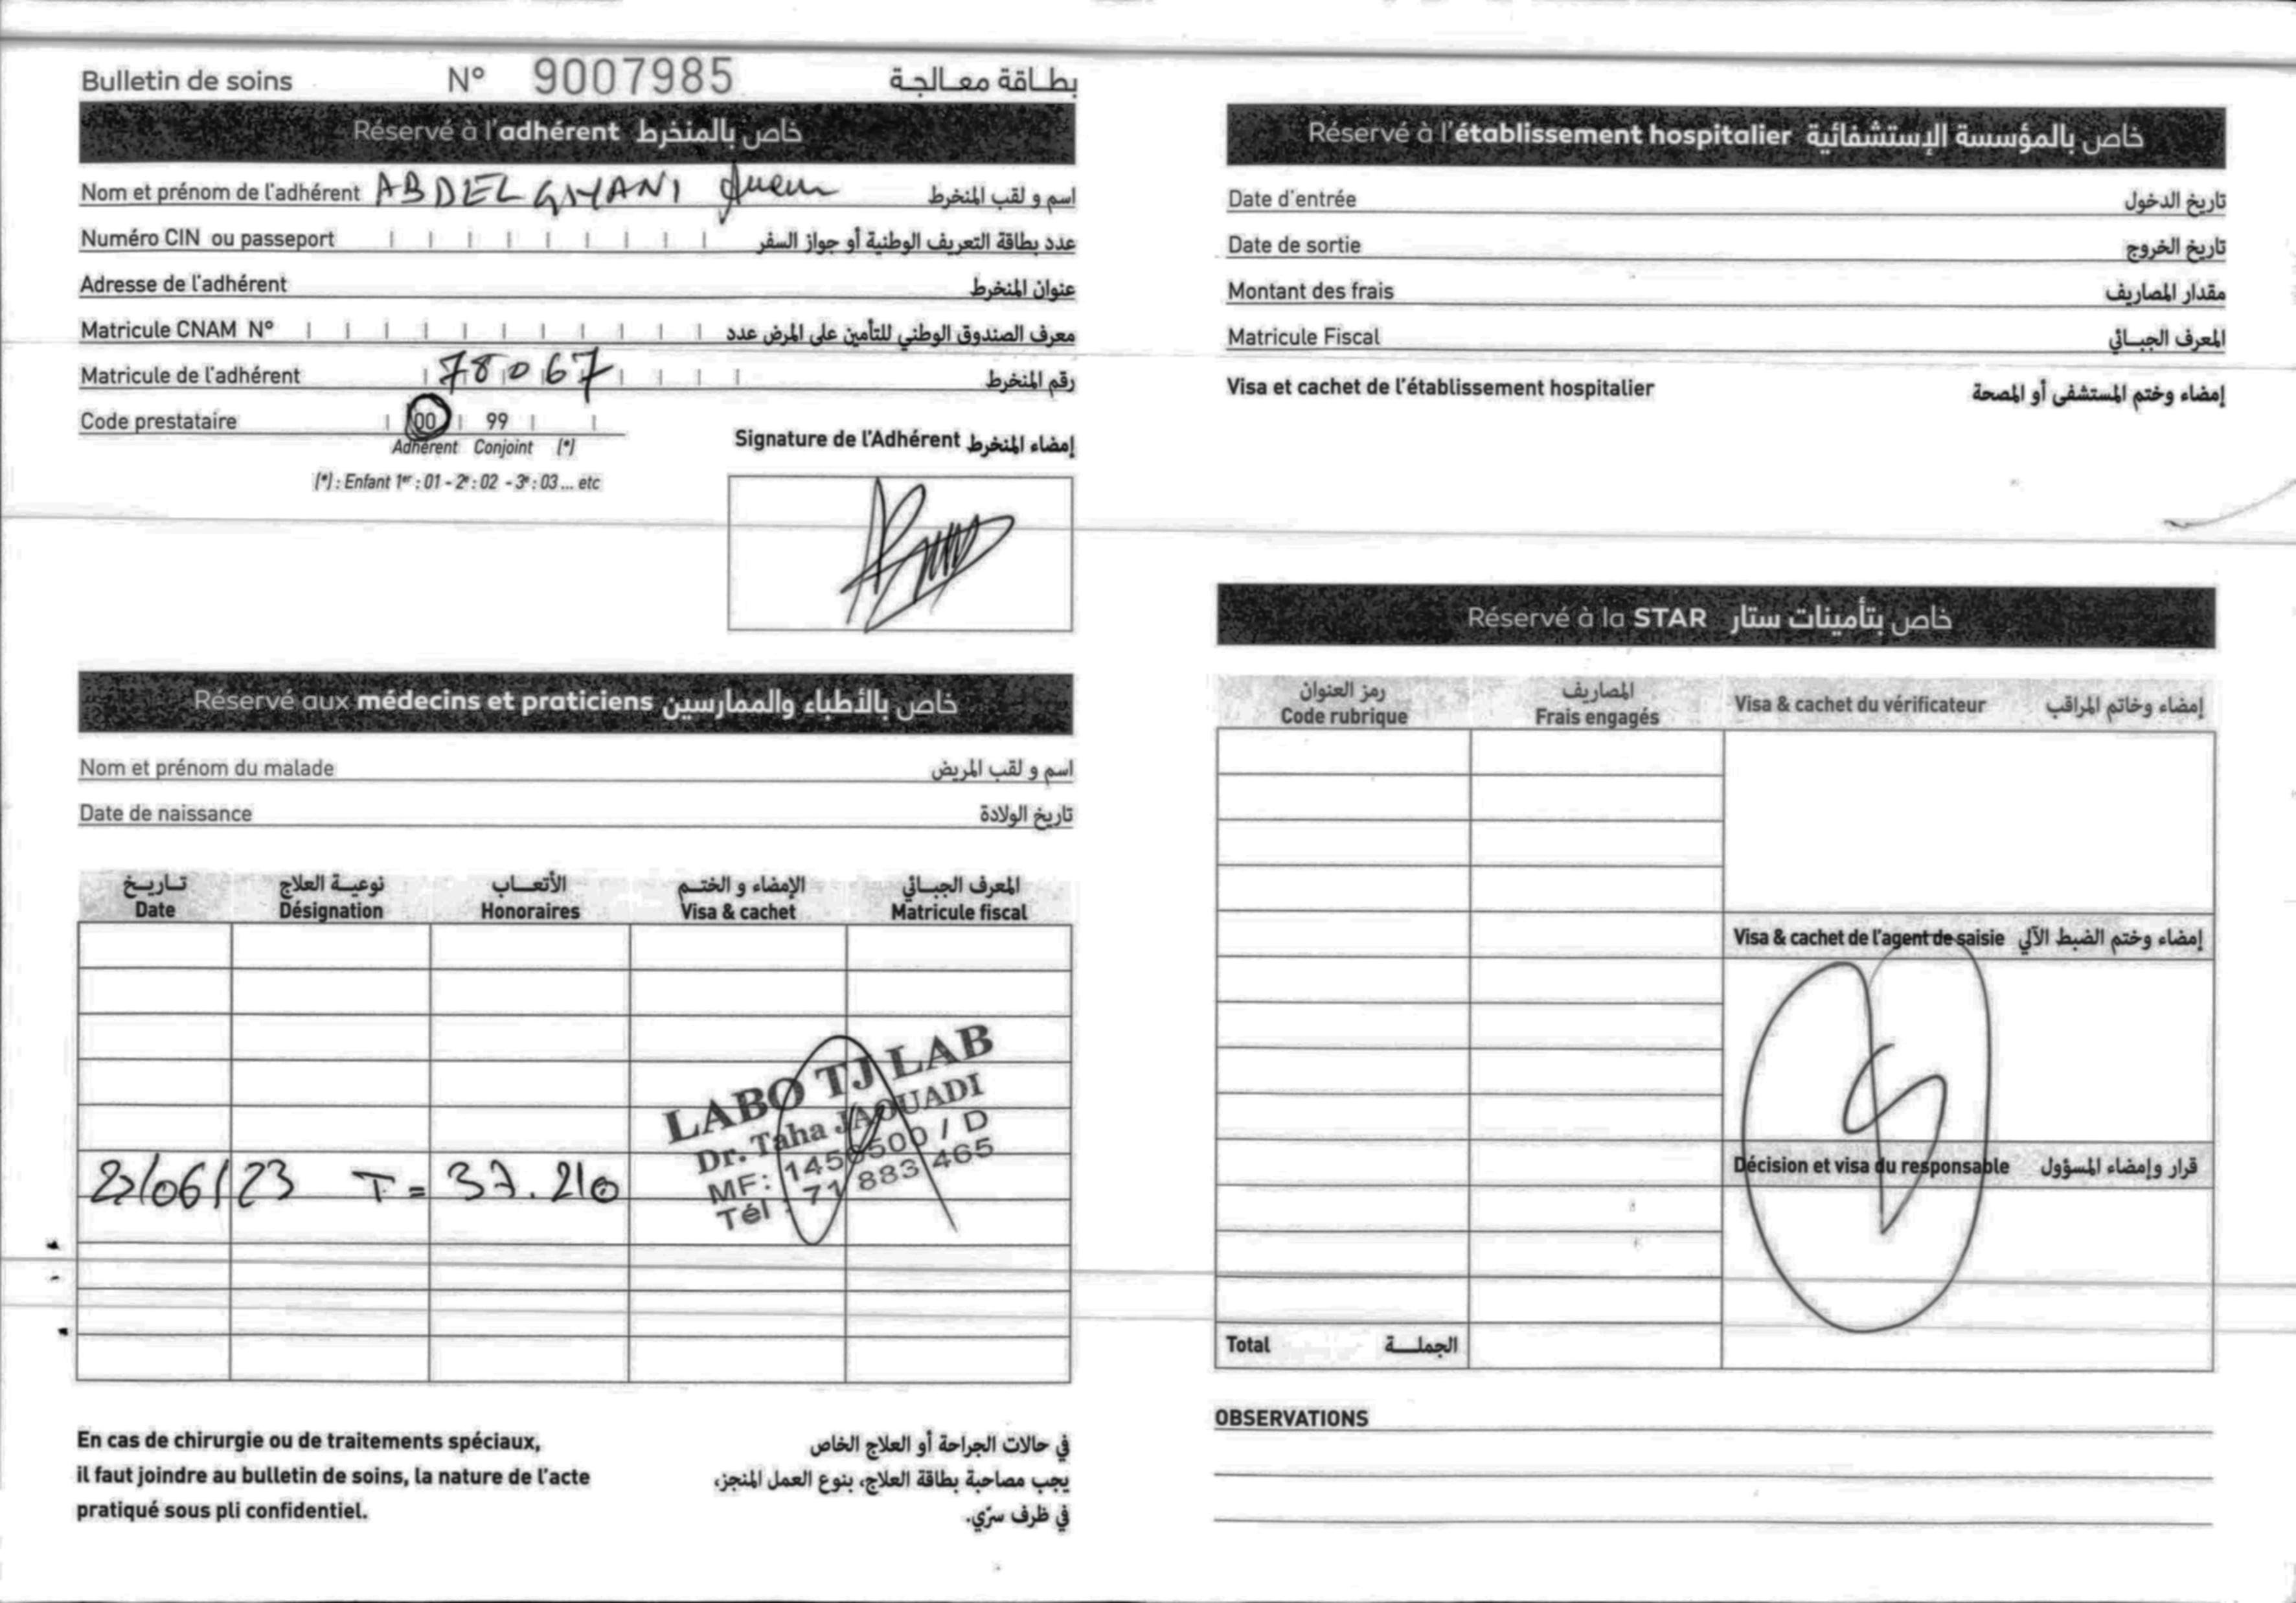 Bulletin de soins N° 9007985 بطاقة معالجة
Réservé à l'adhérent خاص بالمنخرط
Nom et prénom de l'adhérent ABDELGHANI اسم و لقب المنخرط
Numéro CIN ou passeport عدد بطاقة التعريف الوطنية أو جواز السفر
Adresse de l'adhérent عنوان المنخرط
Matricule CNAM N° معرف الصندوق الوطني للتأمين على المرض عدد
Matricule de l'adhérent 78067 رقم المنخرط
Code prestataire 00 99
Adhérent Conjoint (*)
(*) : Enfant 1er : 01 - 2e : 02 - 3e : 03 ... etc
Signature de l'Adhérent إمضاء المنخرط
Réservé aux médecins et praticiens خاص بالأطباء والممارسين
Nom et prénom du malade اسم و لقب المريض
Date de naissance تاريخ الولادة
تاريخ نوعية العلاج الأتعاب الإمضاء و الختم المعرف الجبائي
Date Désignation Honoraires Visa & cachet Matricule fiscal
LABO TJ LAB
Dr. Taha JAOUADI
MF: / D
Tél : 71 883 465
/06/23 T = 37.210
En cas de chirurgie ou de traitements spéciaux,
il faut joindre au bulletin de soins, la nature de l'acte
pratiqué sous pli confidentiel.
في حالات الجراحة أو العلاج الخاص
يجب مصاحبة بطاقة العلاج، بنوع العمل المنجز،
في ظرف سرّي.
Réservé à l'établissement hospitalier خاص بالمؤسسة الإستشفائية
Date d'entrée تاريخ الدخول
Date de sortie تاريخ الخروج
Montant des frais مقدار المصاريف
Matricule Fiscal المعرف الجبائي
Visa et cachet de l'établissement hospitalier إمضاء وختم المستشفى أو المصحة
Réservé à la STAR خاص بتأمينات ستار
رمز العنوان المصاريف
Code rubrique Frais engagés Visa & cachet du vérificateur إمضاء وخاتم المراقب
Visa & cachet de l'agent de saisie إمضاء وختم الضبط الآلي
Décision et visa du responsable قرار وإمضاء المسؤول
Total الجملة
OBSERVATIONS